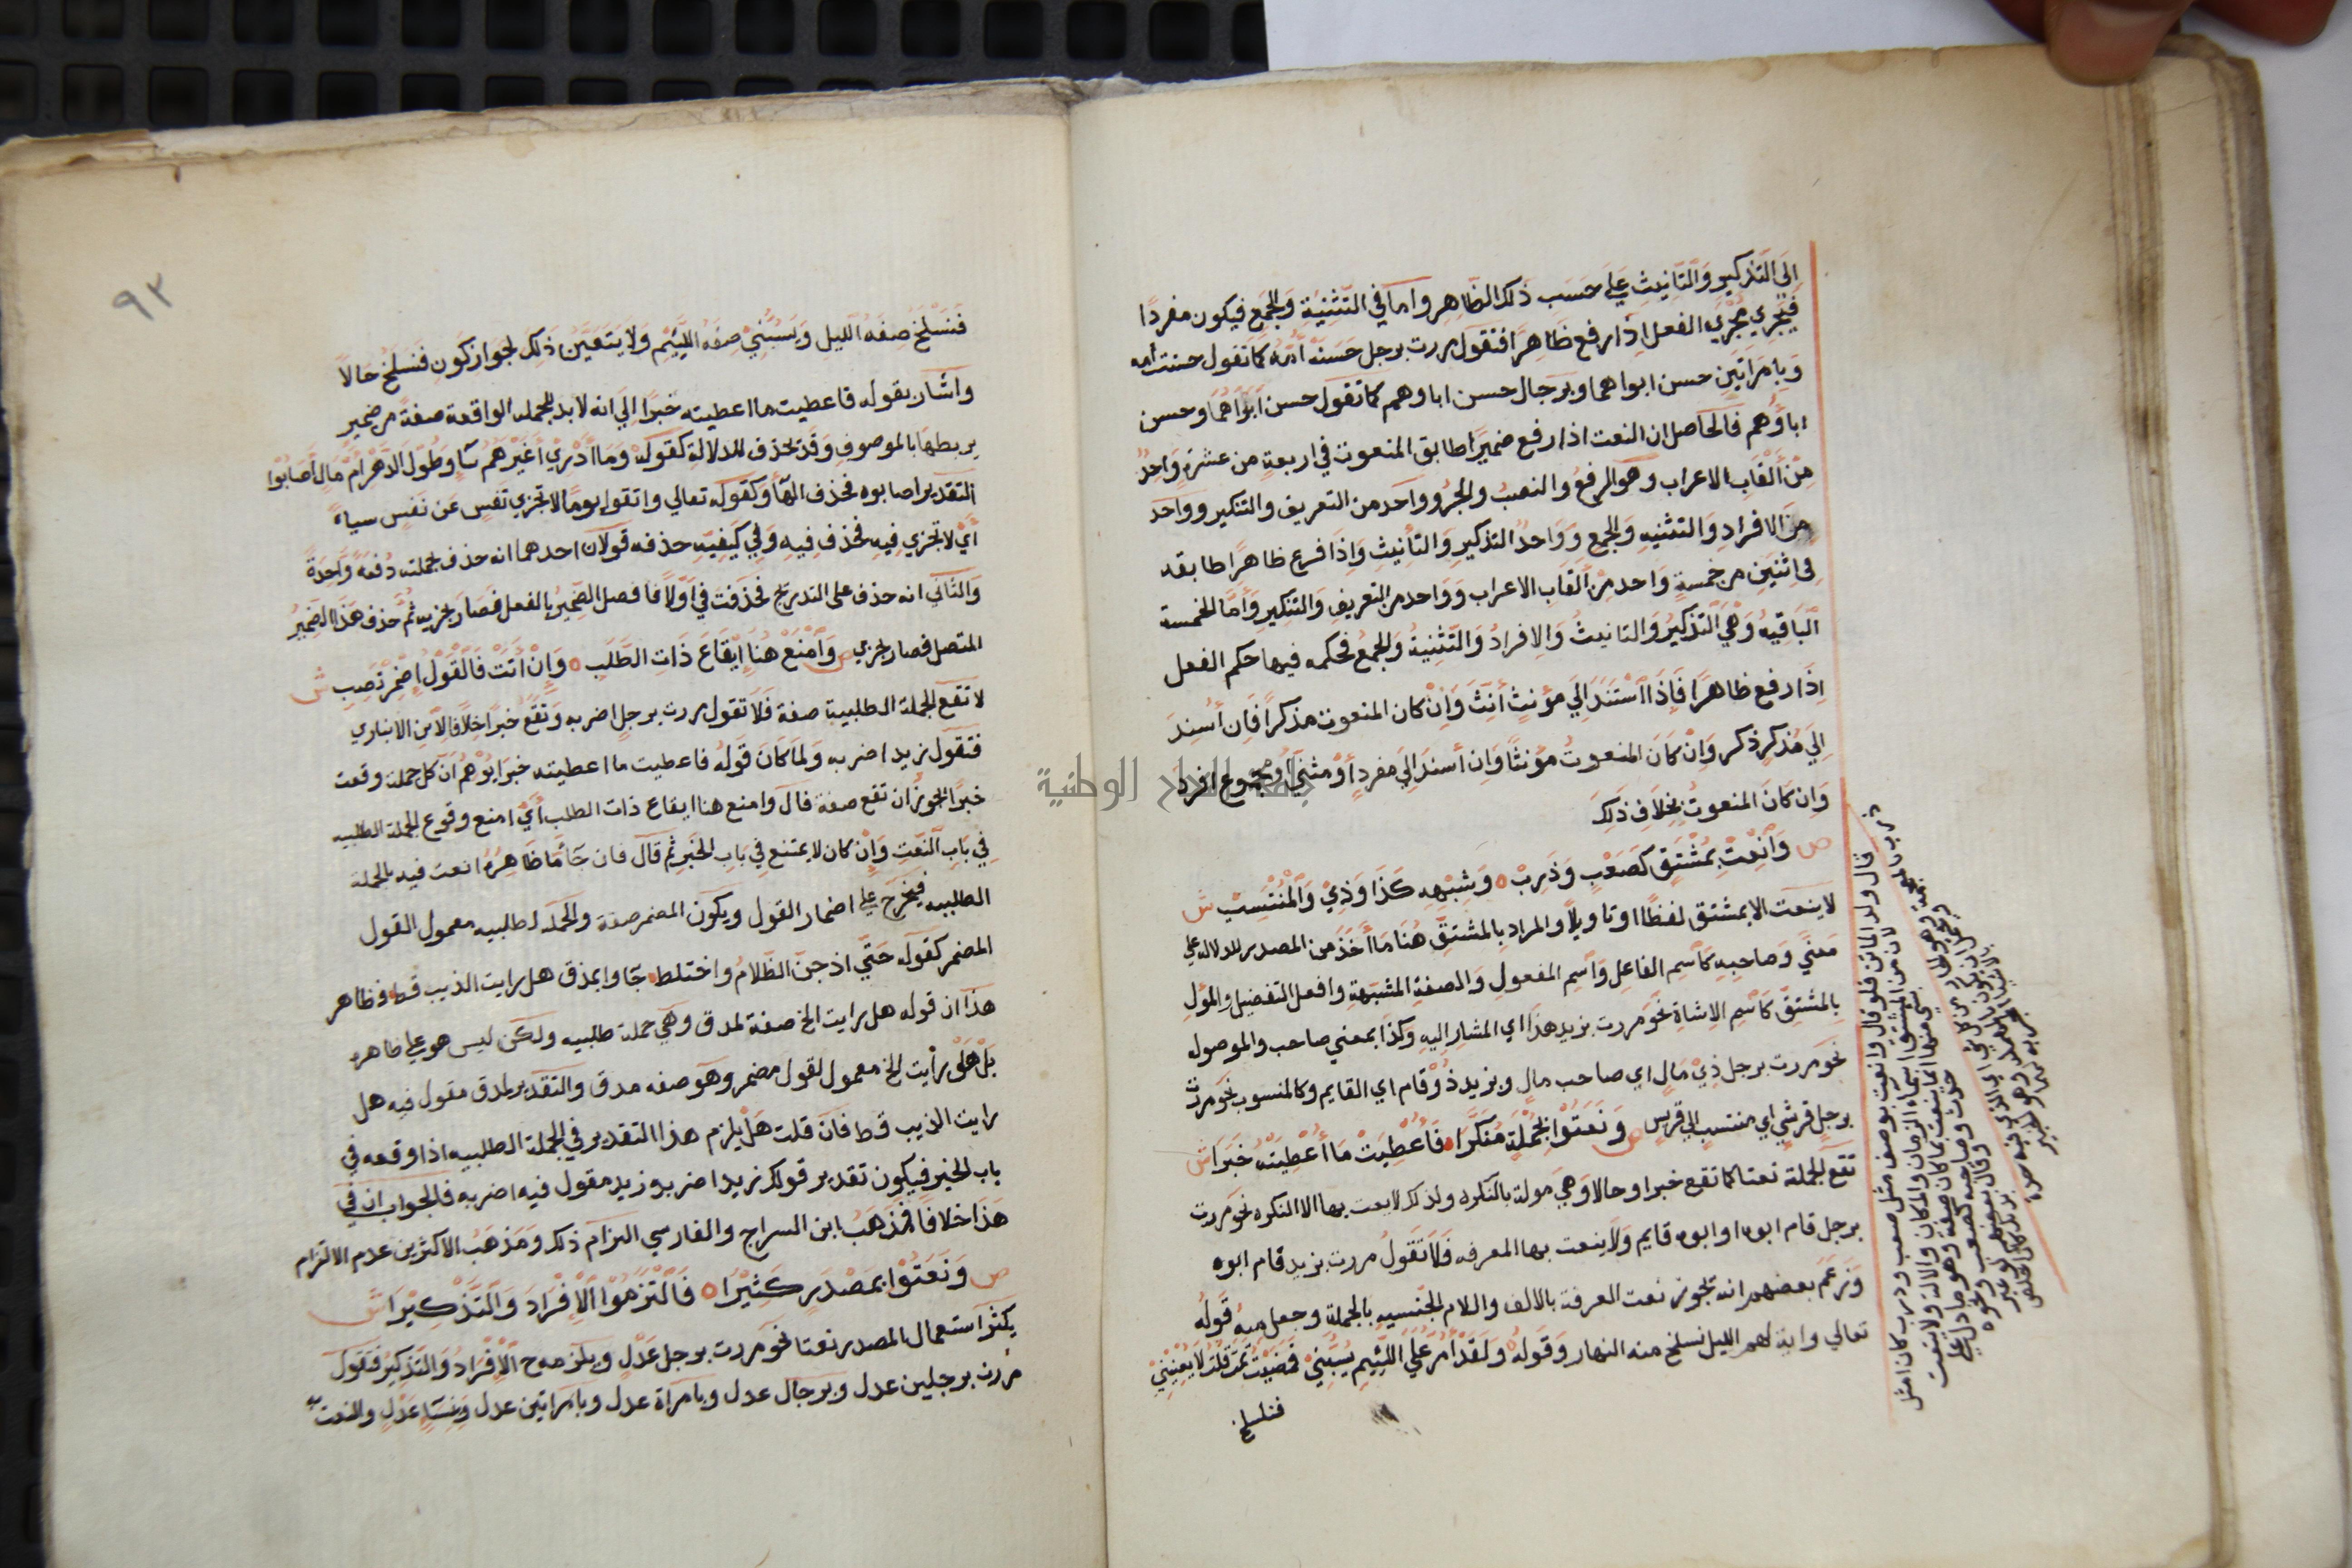 الي التذكير والتانيث علي حسب ذلك الظاهر واما في التثنية والجمع فيكون مفردا
فيجري مجري الفعل اذا رفع ظاهرا فتقول مررت برجل حسنة امه كما تقول حسنت امه
وبامراتين حسن ابواهما وبرجال حسن اباوهم كما تقول حسن ابواهما وحسن
اباوهم فالحاصل ان النعت اذا رفع ضميرا طابق المنعوت في اربعة من عشرة واحد
من ألقاب الاعراب وهو الرفع والنصب والجر وواحد من التعريف والتنكير وواحد
من الافراد والتثنيه والجمع وواحد التذكير والتأنيث واذا فرع ظاهرا طابقه
في اثنين من خمسة واحد من القاب الاعراب وواحد من التعريف والتنكير وأما الخمسة
الباقيه وهي التذكير والتانيث والافراد والتثنية والجمع فحكمه فيها حكم الفعل
اذا رفع ظاهرا فإذا استند الي مؤنث أنث وان كان المنعوت مذكرا فان أسند
الي مذكر ذكر وان كان المنعوت مؤنثا وان أسند الي مفرد أو مثني او مجموع افرد
وان كان المنعوت بخلاف ذلك
ص وانعت بمشتق كصعب وذرب ه وشبهه كذا وذي والمنتسب ش
لا ينعت الا بمشتق لفظا او تاويلا والمراد بالمشتق هنا ما أخذ من المصدر للدلاله علي
معني وصاحبه كاسم الفاعل واسم المفعول والصفة المشبهة وافعل التفضيل والمؤل
بالمشتق كاسم الاشاة نحو مررت بزيد هذا اي المشار اليه وكذا بمعني صاحب والموصوله
نحو مررت برجل ذي مال اي صاحب مال وبزيد ذو قام اي القايم وكالمنسوب نحو مررت
برجل قرشي اي منتسب الي قريس ص ونعتوا بجملة منكرا ه فأعطيت ما أعطيته خبرا ش
تقع الجملة نعتا كما تقع خبرا وحالا وهي مولة بالنكره ولذلك لا ينعت بها الا النكره نحو مررت
برجل قام ابوه او ابوه قايم ولا ينعت بها المعرفه فلا تقول مررت بزيد قام ابوه
وزعم بعضهم انه تجوز نعت المعرفة بالالف واللام الجنسيه بالجملة وجعل منه قوله
تعالي واية لهم الليل نسلخ منه النهار وقوله ولقد أمر علي اللئيم يسبني فمضيت ثمة قلت لا يعنيني
فنسلخ
قال ولد الماتن فلو قال وانعت بوصف مثل صعب وذرب كان امثل
لان من المشتق اسماء الزمان والمكان والالة ولا ينعت
بشي منها انما ينعت بما كان صفة وهو ما دل علي
حدث وصاحبه كصعب ونحوه
٩٢
فنسلخ صفه الليل ويسبني صفه اللئيم ولا يتعين ذلك لجواز كون فنسلخ حالا
واشار بقوله فاعطيت ما اعطيته خبرا الي انه لا بد للجمله الواقعة صفة من ضمير
يربطها بالموصوف وقد تحذف للدلالة كقوله وما أدري أغيرهم تناء وطول الدهر أم مال أصابوا
التقدير اصابوه فحذف الها وكقوله تعالي واتقوا يوما لا تجزي نفس عن نفس سياء
أي لا تجزي فيه فحذف فيه وفي كيفيه حذفه قولان احدهما انه حذف بجملته دفعة واحدة
والثاني انه حذف على التدريج فحذفت في اولا فاتصل الضمير بالفعل فصار تجزيه ثم حذف هذا الضمير
المتصل فصار تجزي ص وامنع هنا إيقاع ذات الطلب ه وان اتت فالقول اضمر تصب ش
لا تقع الجملة الطلبية صفة فلا تقول مررت برجل اضربه وتقع خبرا خلافا لابن الانباري
فتقول زيد اضربه ولما كان قوله فاعطيت ما اعطيته خبرا يوهم ان كل جملة وقعت
خبرا تجوز ان تقع صفة قال وامنع هنا ايقاع ذات الطلب أي امنع وقوع الجملة الطلبيه
في باب النعت وان كان لا يمتنع في باب الخبر ثم قال فان جا ما ظاهره انعت فيه بالجملة
الطلبيه فيخرج علي اضمار القول ويكون المضمر صفة والجمله لطلبيه معمول القول
المضمر كقوله حتي اذ جن الظلام واختلط ه جاوا بمذق هل رايت الذيب قط ه فظاهر
هذا ان قوله هل رايت الخ صفة لمدق وهي جملة طلبيه ولكن ليس هو علي ظاهره
بل هل رأيت الخ معمول لقول مضمر وهو صفه مدق والتقدير بمدق مقول فيه هل
رايت الذيب قط فان قلت هل يلزم هذا التقدير في الجملة الطلبيه اذا وقعه في
باب الخبر فيكون تقدير قولك زيد اضربه زيد مقول فيه اضربه فالجواب ان في
هذا خلافا فمذهب ابن السراج والفارسي التزام ذلك ومذهب الاكثرين عدم الالتزام
ص ونعتوا بمصدر كثيرا ه فالتزموا الافراد والتذكيرا ش
يكثر استعمال المصدر نعتا نحو مررت برجل عدل ويلزمه ح الافراد والتذكير فتقول
مررت برجلين عدل وبرجال عدل وبامراة عدل وبامراتين عدل وبنساء عدل والنعت به